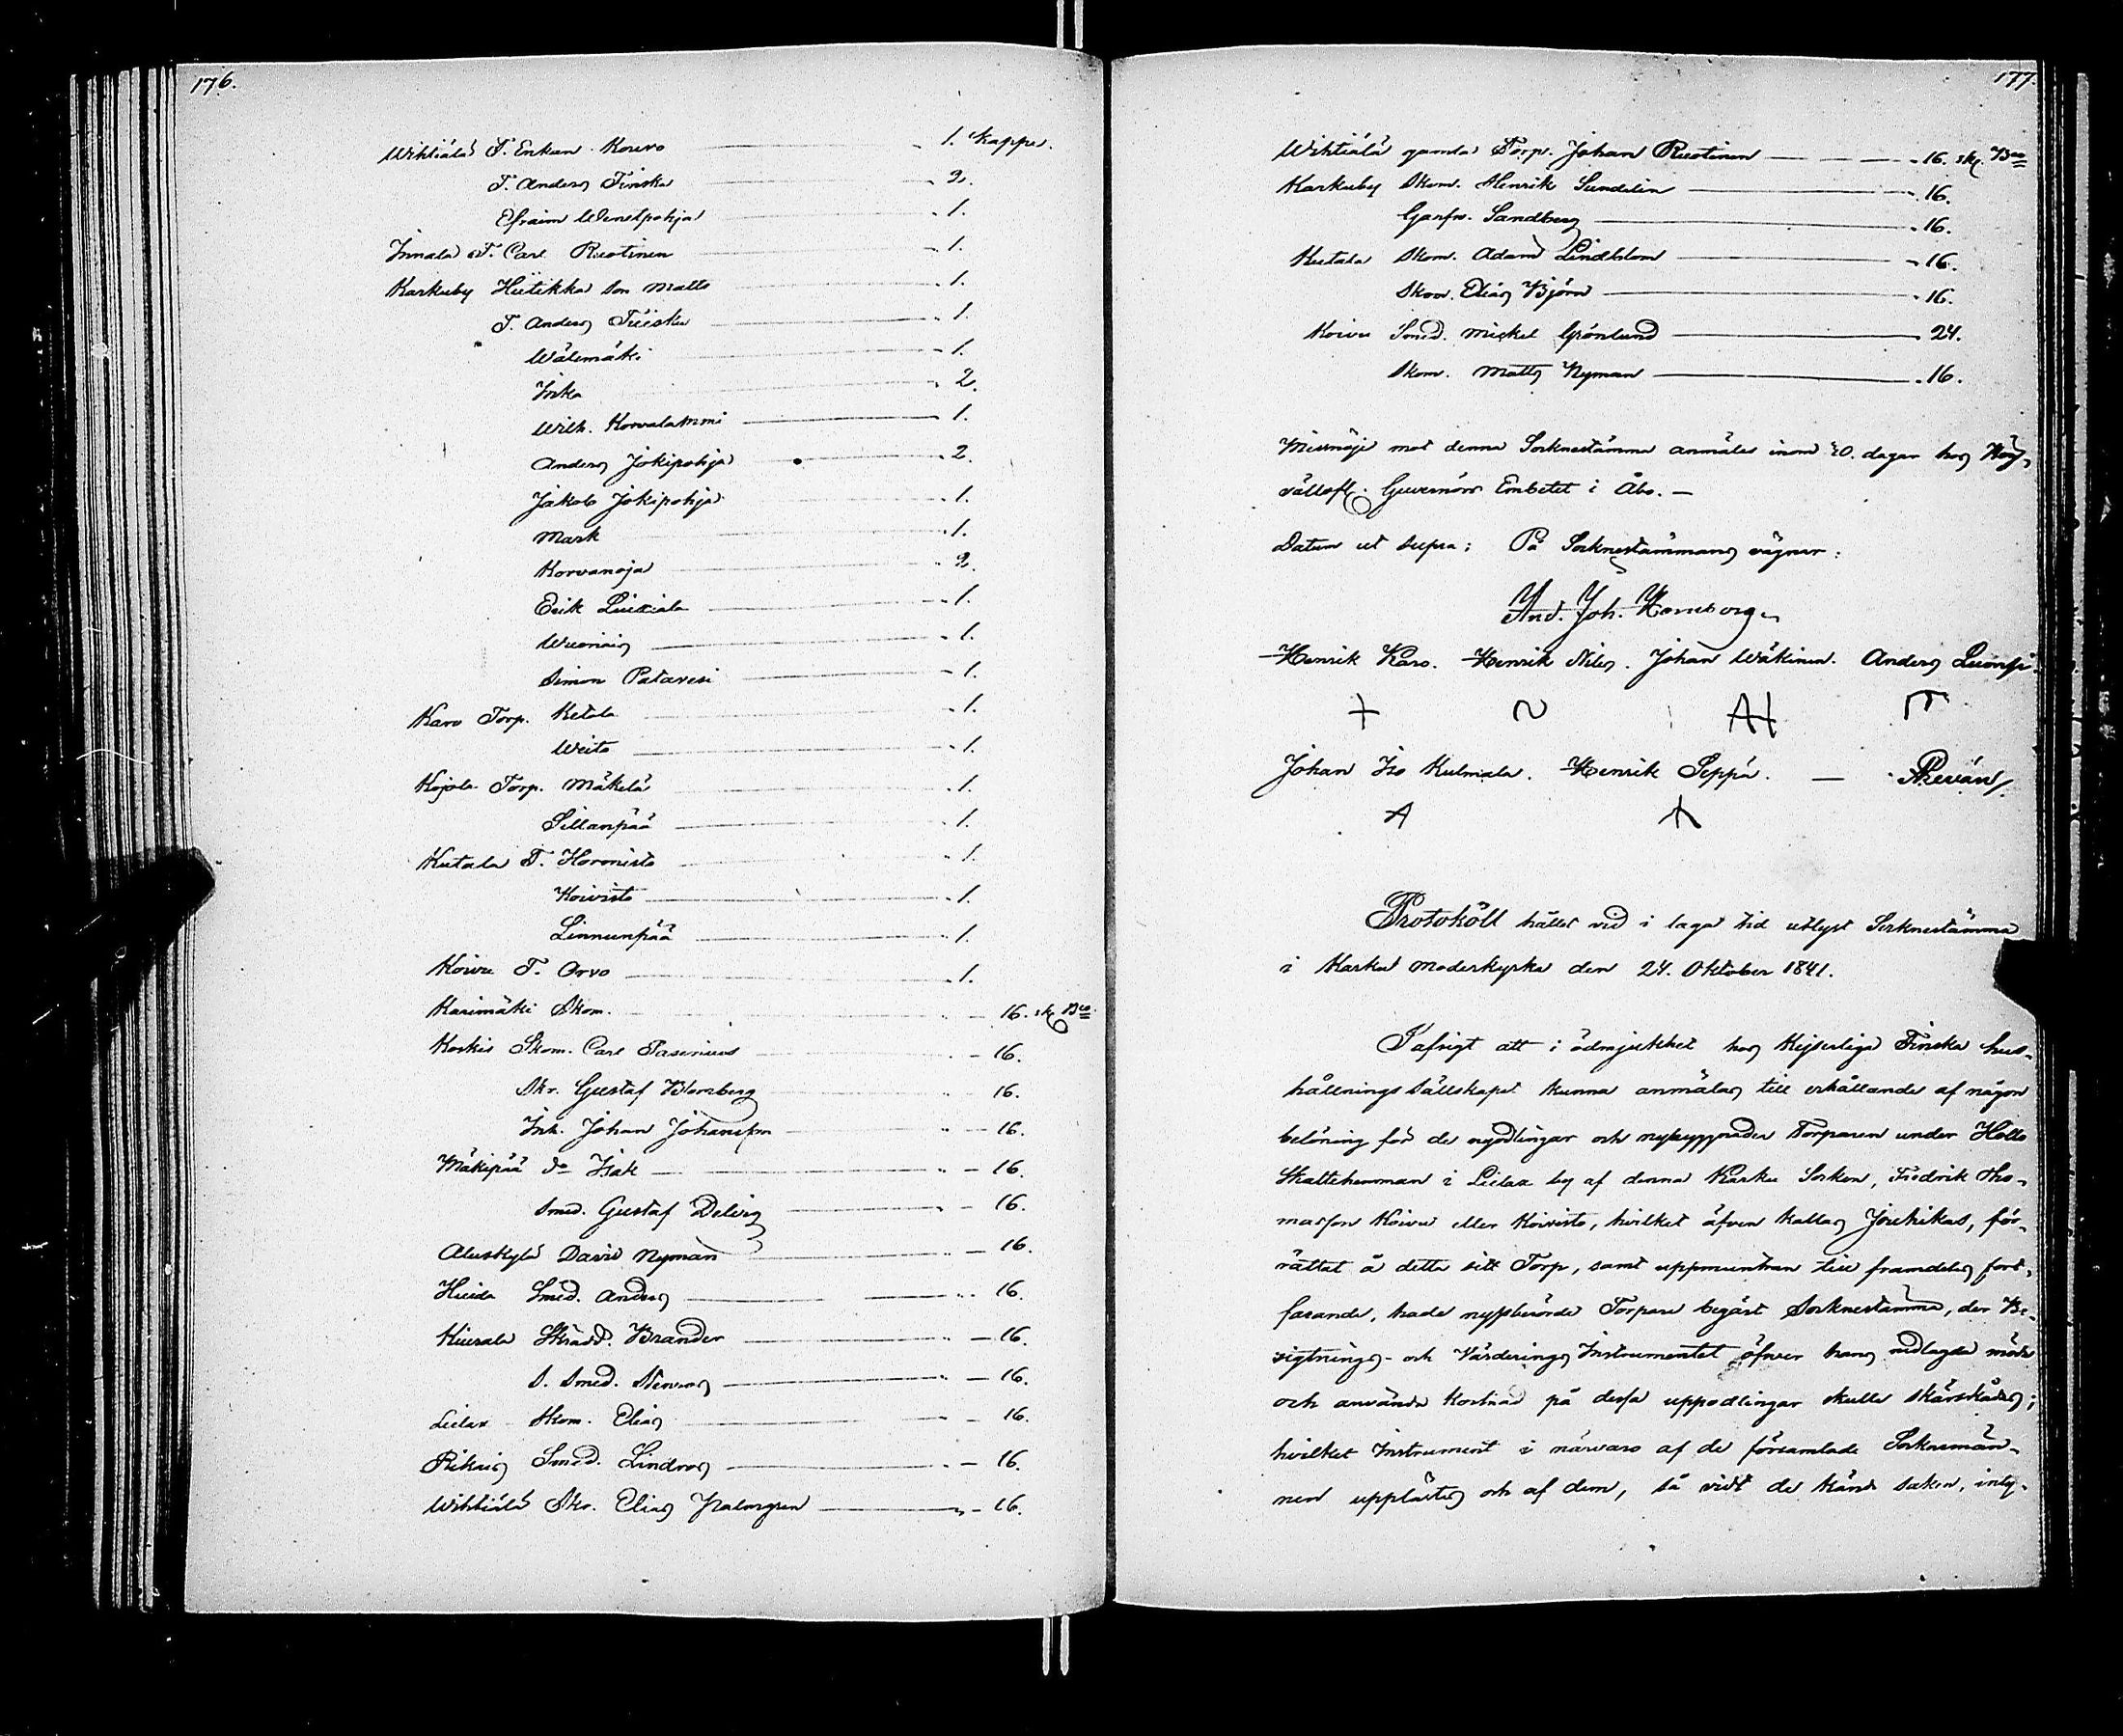 176.
Wihtiälä T. Enkan Kouvo 1. Kappe.
T. Anders Finska 2.
Efraim Wenetpohja 1.
Innala T. Carl Ruotinen 1.
Karkuby Hiitikka son Matts 1.
T. Anders 1.
Wälimäki 1.
Inka 2.
Wilh. Korvalammi 1.
Anders Jokipohja 2.
Jakob Jokipohja 1.
Mark 1.
Korvanoja 2.
Erik 1.
1.
Simon Patavesi 1.
Karo Torp. Ketola 1.
Weito 1.
Kojola Torp. Mäkelä 1.
Sillanpää 1.
Kutala T. Haronisto 1.
Koivisto 1.
Linnunpää 1.
Koivu T. Orvo 1.
Karimäki Skom. 16. sk Bco
Koskis Skom. Carl Pasenius 16.
Skr. Gustaf Blomberg 16.
Inh. Johan Johansson 16.
Mäkipää do Isak 16.
Smed. Gustaf Delvig 16.
Aluskylä David Nyman 16.
Hieida Smed. Anders 16.
Kiurala Skradd. Brander 16.
S. Smed. Stenros 16.
Lielax Skom. Elias 16.
Rikais Smed. Lindros 16.
Wihtiälä Skr. Elias Palmgren 16.
177.
Wihtiälä gamla Torp. Johan Ruotinen 16. sk. Bco
Karkuby Skom. Henrik Sundelin 16.
Garfv. Sandberg 16.
Kutala Skom. Adam Lindblom 16.
Skom. Elias Björn 16.
Koivu Smed. Mickel Grönlund 24.
Skom. Matts Nyman 16.
Missnöje mot denna Socknestämma anmäles inom 30. dagar hos Höj-
vällofl. Guvernörs Embetet i Åbo. —
Datum ut supra; På Socknestämmans vägnar:
And. Joh. Hornborg.
Henrik Karo. Henrik Niles. Johan Wäkinen. Anders Luonsi.
Johan Iso Kulmala. Henrik Seppä. —
Protokoll hållet vid i laga tid utlyst Socknestämma
i Karku Moderkyrka den 24. Oktober 1841.
I afsigt att i ödmjukhet hos Kejserliga Finska hus-
hållnings sällskapet kunna anmälas till erhållande af någon
belöning för de nyodlingar och nybyggnader Torparen under Hollo
Skattehemman i Lielax by af denna Karku Socken, Fredrik Tho-
masson Koivu eller Koivisto, hvilket äfven kallas Jouhikas, för-
rättat å detta sitt Torp, samt uppmuntran till framdeles fort-
farande, hade nyssberörde Torpare begärt Socknestämma, der Be-
sigtnings- och Värderings Instrumentet öfver hans nedlagda möda
och använda kostnad på dessa uppodlingar skulle skärskådas;
hvilket Instrument i närvaro af de församlade Socknemän-
nen upplästes och af dem, så vidt de kände saken, inty-